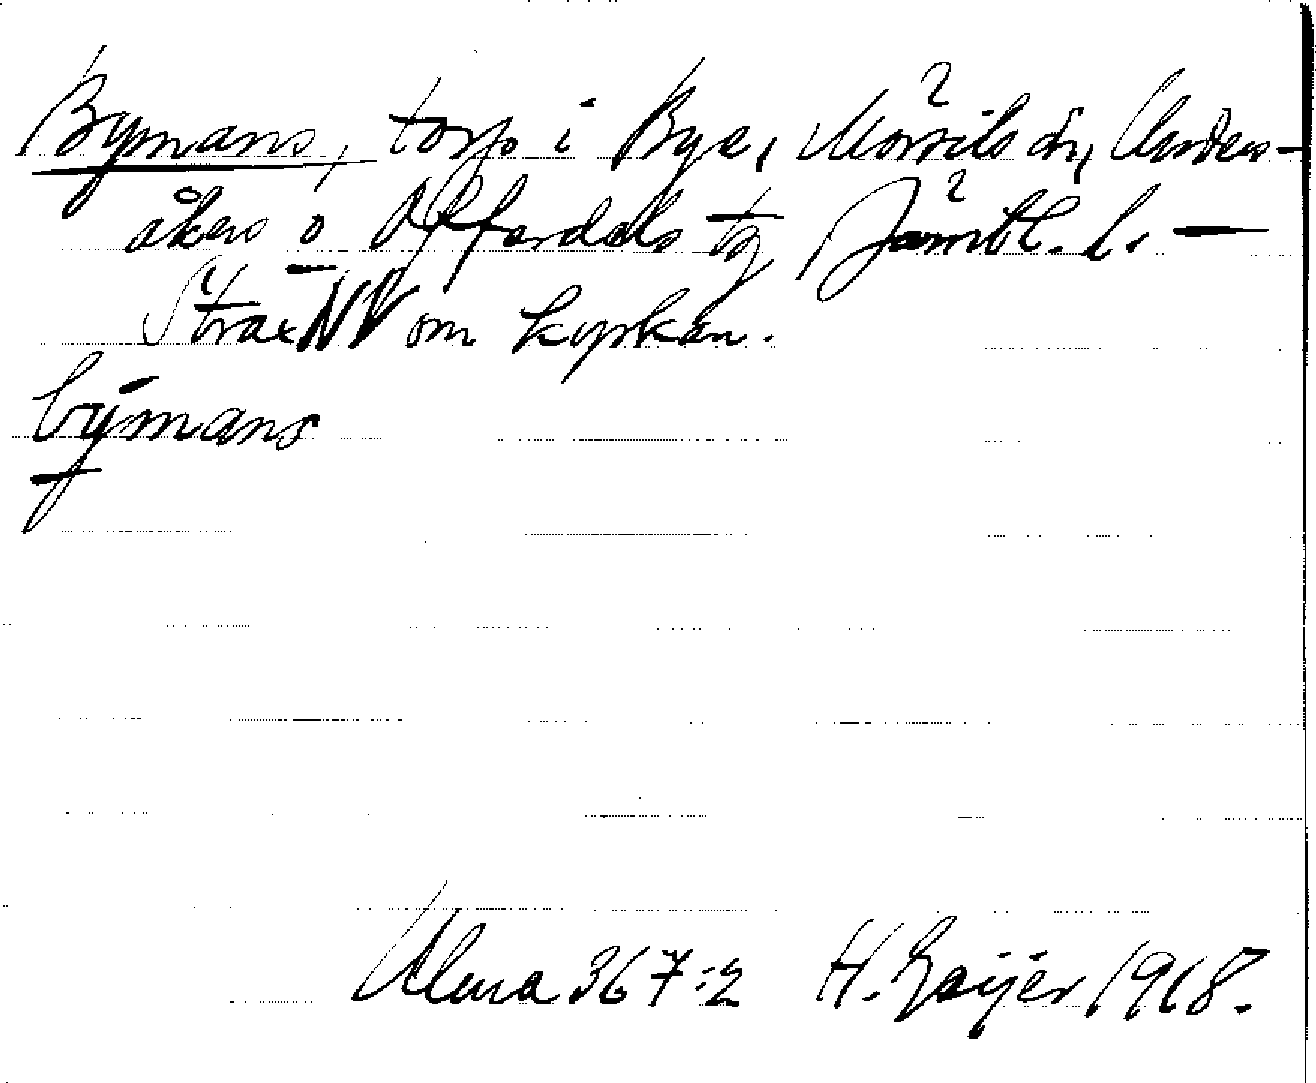 Bymans, torp i Bye, Mörsils sn, Unders-
åkers o Offerdals tg Jämtl. l. —
Strax NV om kyrkan.
bȳmans
Ulma 367:2 H. Geijer 1918.